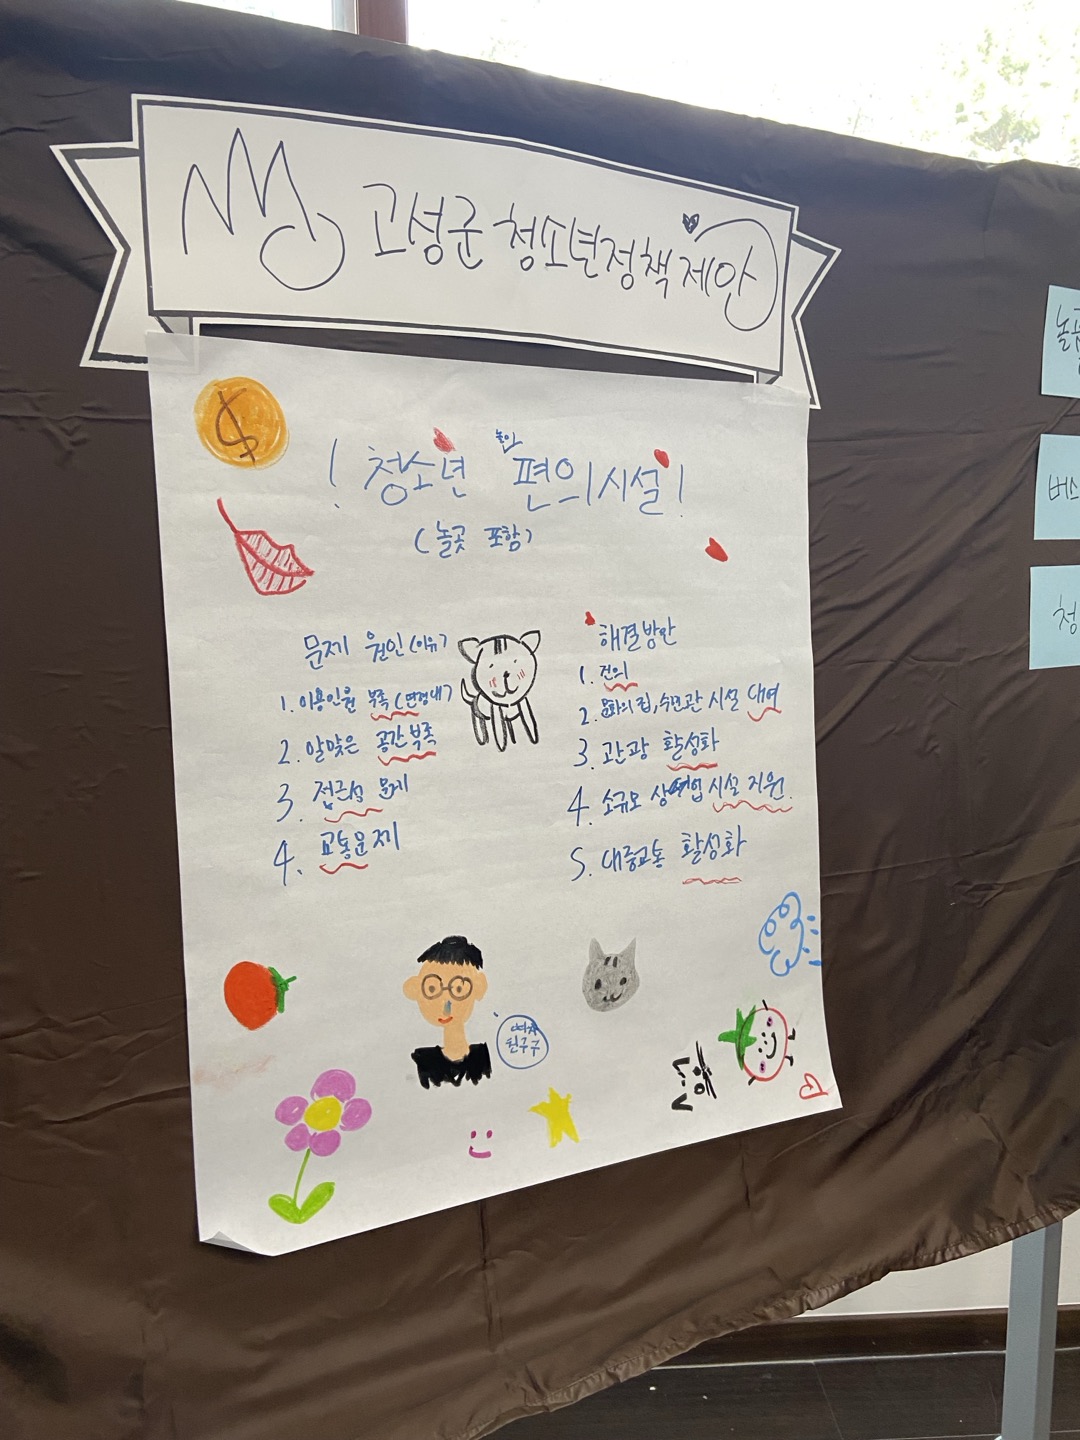 고성군 청소년정책 제안
$
! 청소년 편의시설!
(놀곳 포함)
문제 원인(이유)
1. 이용인원 부족(연령대)
2. 알맞은 공간부족
3. 접근성 문제
4. 교통문제
해결방안
1. 건의
2. 문화의집, 수련관 시설 대여
3. 관광 활성화
4. 소규모 상업 시설 지원.
5. 대중교통 활성화
버스
청